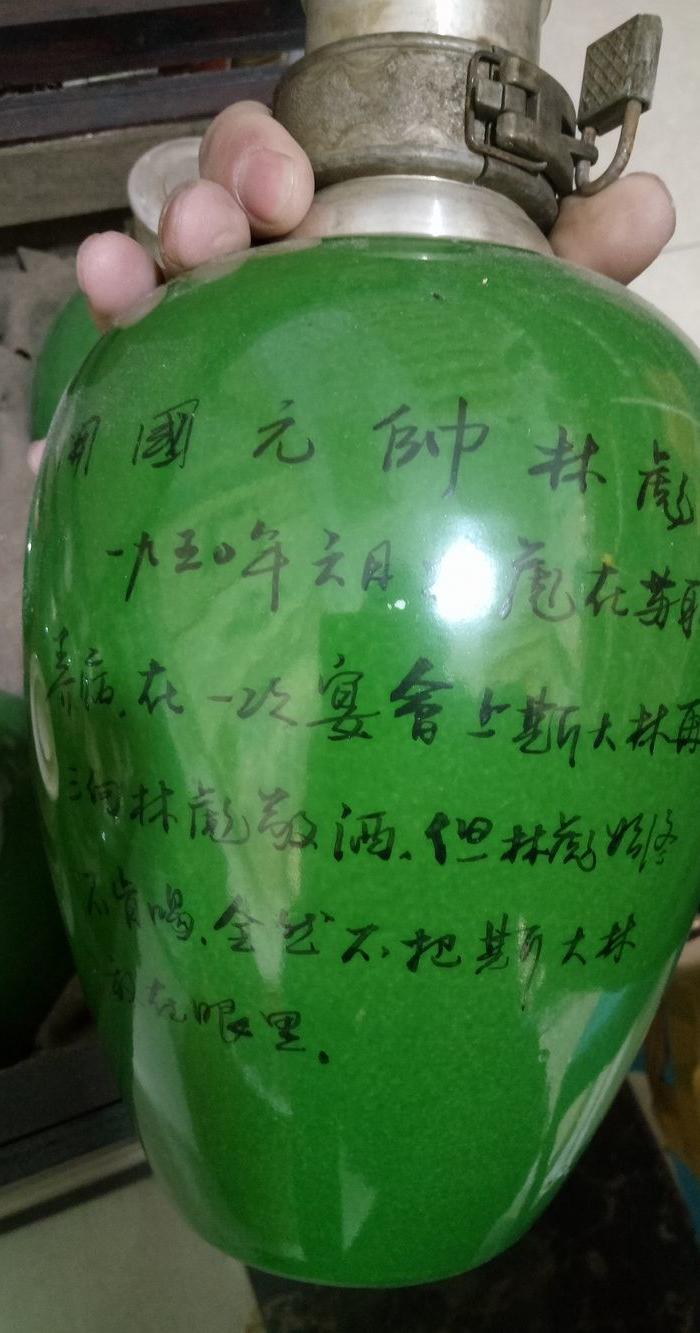 開國元帥林彪
一九五〇年六月 彪在蘇聯
养病.在一次宴會上斯大林再
三向林彪敬酒.但林彪始终
不肯喝.全然不把斯大林
放在眼里.